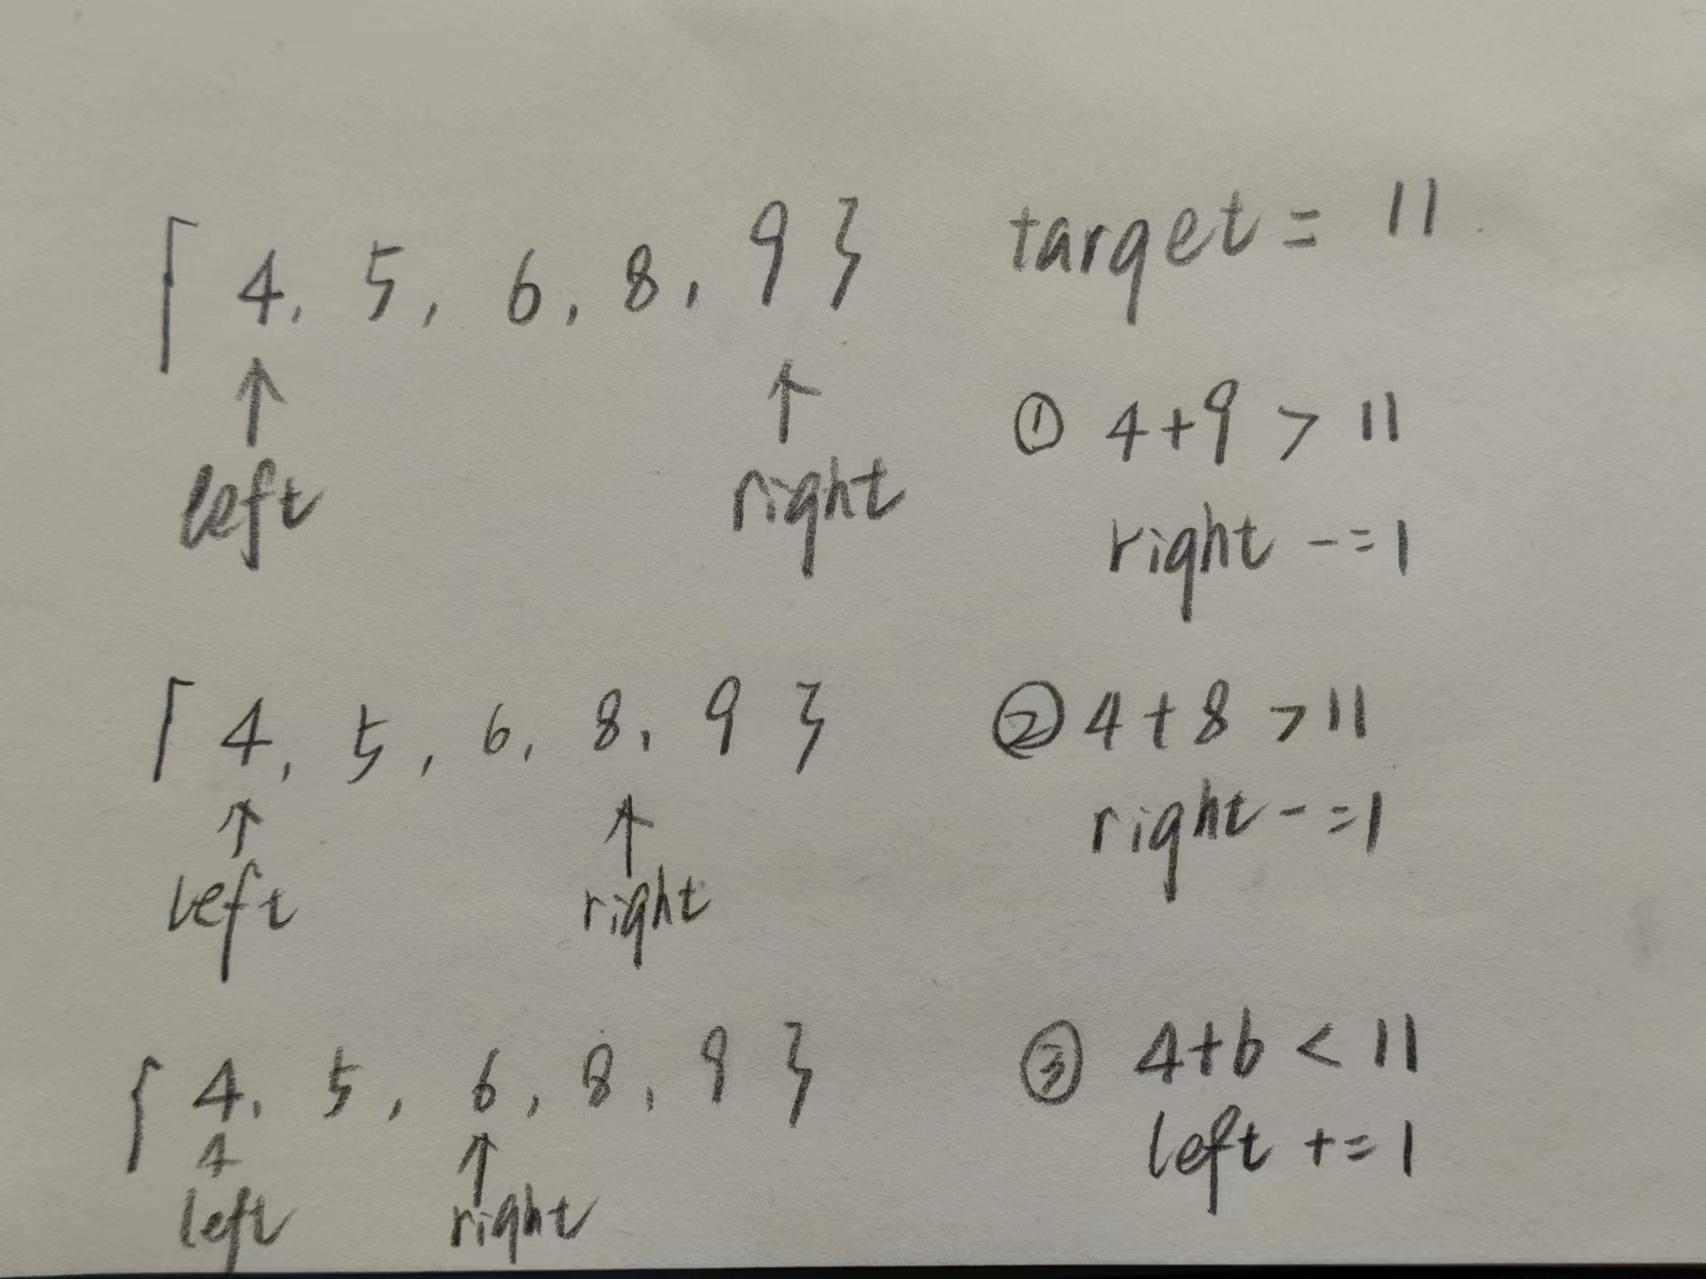 [ 4, 5, 6, 8, 9 } target = 11
↑ ↑
left right
① 4+9 > 11
right -=1
[ 4, 5, 6, 8, 9 } ② 4+8 >11
↑ ↑
left right
right -=1
{ 4, 5, 6, 8, 9 } ③ 4+6 < 11
↑ ↑
left right
left +=1